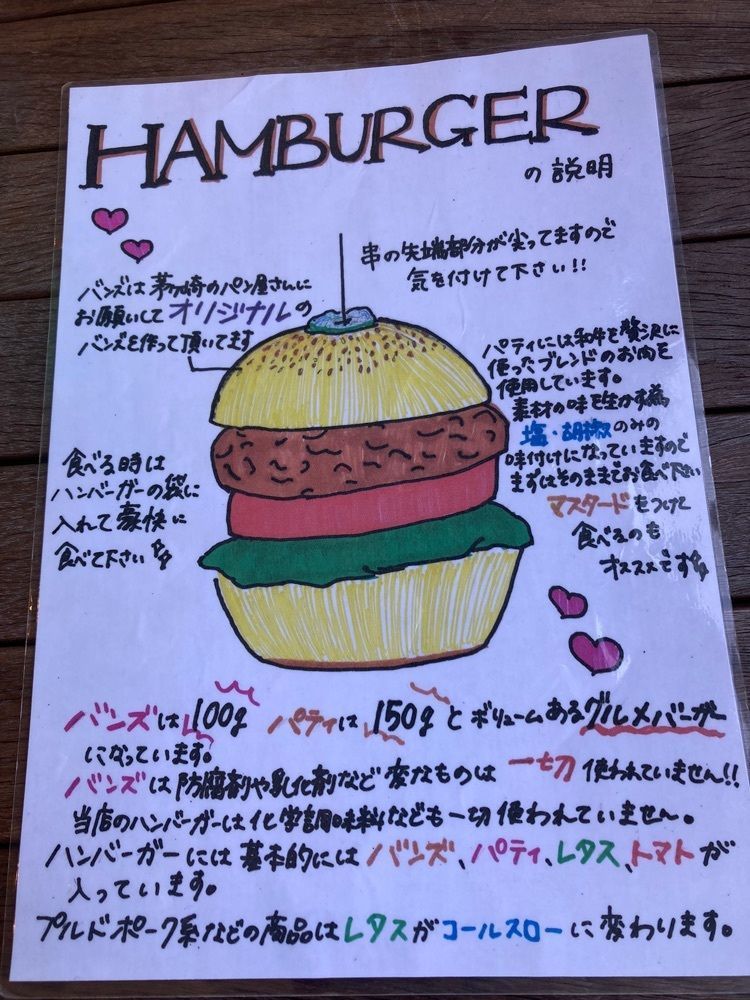 HAMBURGER
の説明
串の先端部分が尖ってますので
気を付けて下さい!!
バンズは茅ヶ崎のパン屋さんに
お願いしてオリジナルの
バンズを作って頂いてます
パティには和牛を贅沢に
使ったブレンドのお肉を
使用しています。
素材の味を生かす為
塩・胡椒のみの
味付けになっていますので
まずはそのままでお食べ下さい
マスタードをつけて
食べるのも
オススメです
食べる時は
ハンバーガーの袋に
入れて豪快に
食べて下さい
バンズは100g パティは150gとボリュームあるグルメバーガー
になっています。
バンズは防腐剤や乳化剤など変なものは一切使われていません!!
当店のハンバーガーは化学調味料なども一切使われていません。
ハンバーガーには基本的にはバンズ、パティ、レタス、トマトが
入っています。
プルドポーク系などの商品はレタスがコールスローに変わります。